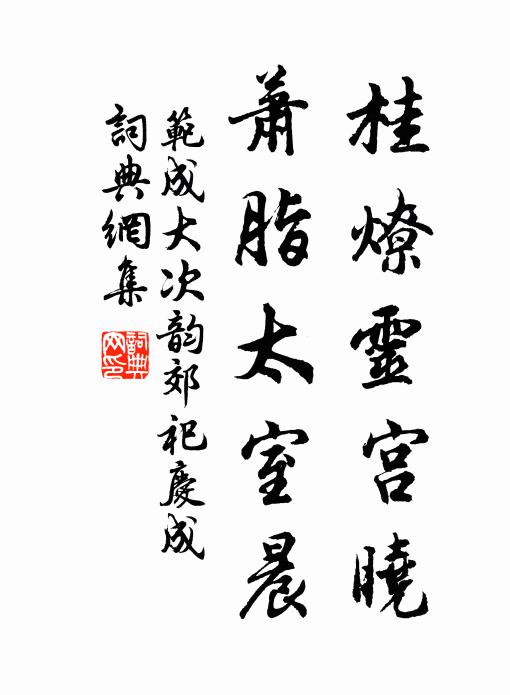 桂燎靈宮曉
蕭脂太室晨
範成大次韵郊祀慶成
詞典網集
詞典網印